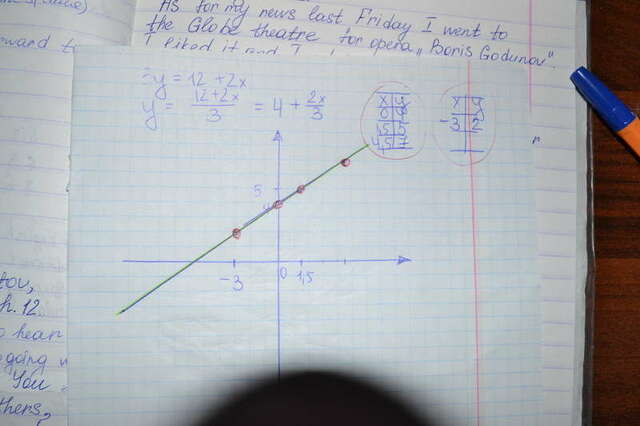 As for my news last Friday I went to
the Globe theatre for opera „Boris Godunov".
I liked it and I
=y = 12 + 2x
y = 12+2x / 3 = 4 + 2x / 3
x y
0 4
1,5 5
4,5 7
x y
-3 2
5
4
-3 0 1,5
h. 12.
hear
going
You
thers?